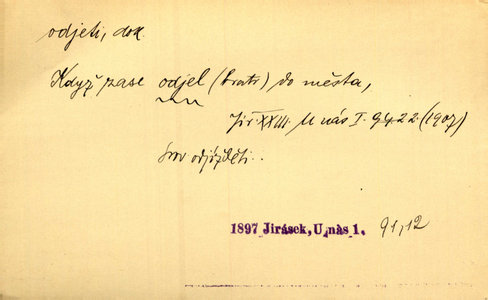 odjeti, dok.
Když zase odjel (bratr) do města,
Jir XXIII. U nás I. 94 22 (1907)
Srov odjížděti.
1897 Jirásek, U nàs 1. 91,12